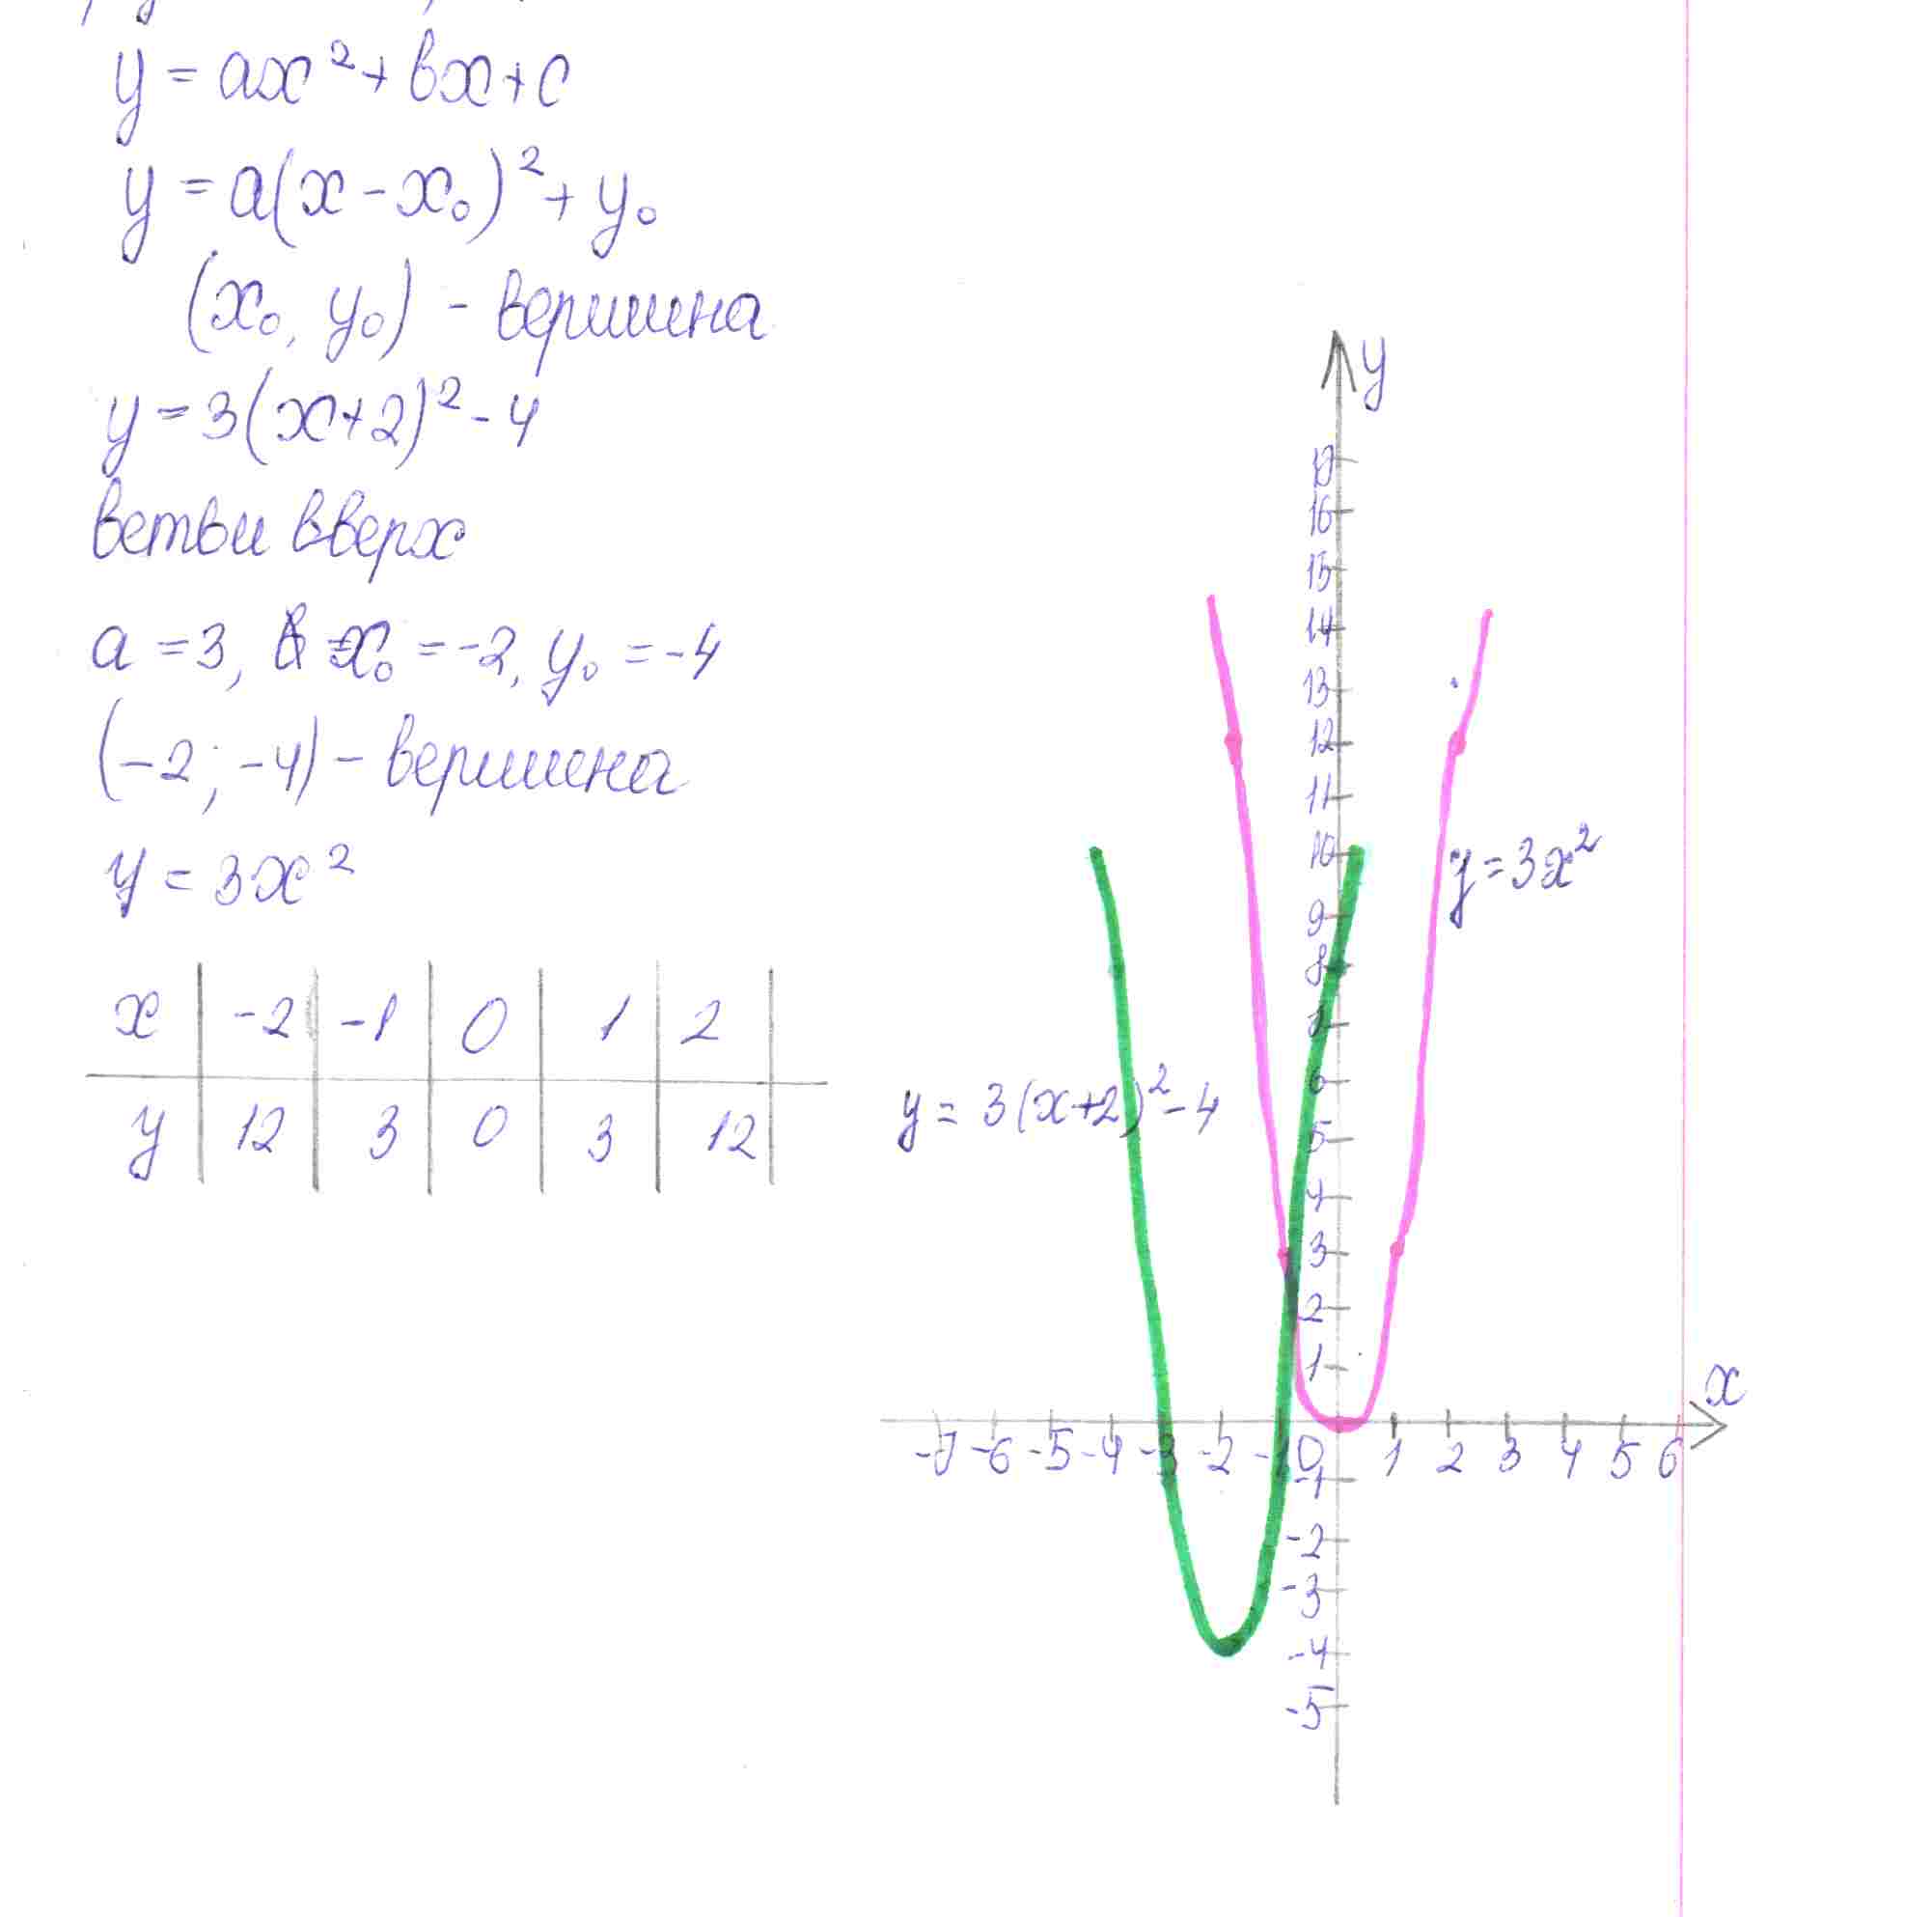 y = ax² + вx + c
y = a(x - x₀)² + y₀
(x₀, y₀) - вершина
y = 3(x+2)² - 4
ветви вверх
a = 3, x₀ = -2, y₀ = -4
(-2; -4) - вершина
y = 3x²
x -2 -1 0 1 2
y 12 3 0 3 12
y
17
16
15
14
13
12
11
10
y = 3x²
9
8
7
6
y = 3(x+2)² - 4
5
4
3
2
1
x
-7 -6 -5 -4 -3 -2 -1 0 1 2 3 4 5 6
-1
-2
-3
-4
-5